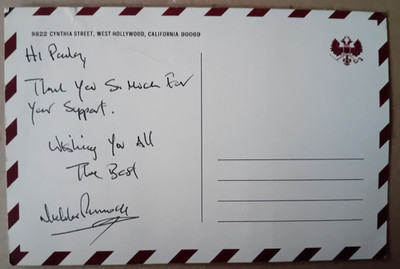 9822 CYNTHIA STREET, WEST HOLLYWOOD, CALIFORNIA 90069
Hi
Thank You So Much For
Your Support.
Wishing You All
The Best